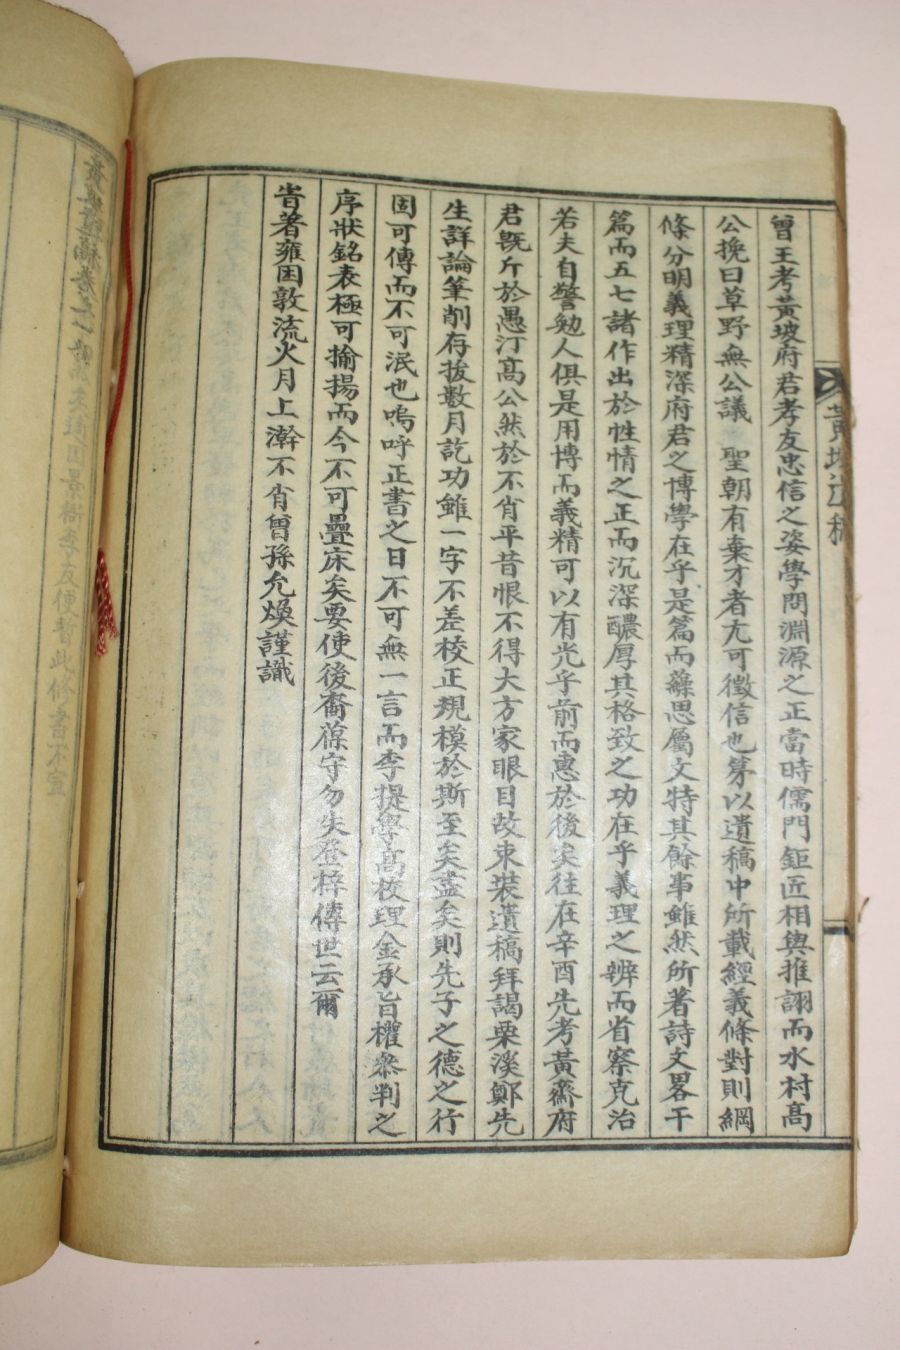 黃坡遺稿
曾王考黃坡府君孝友忠信之姿學問淵源之正當時儒門鉅匠相與推詡而水村高
公挽曰草野無公議 聖朝有棄才者尤可徵信也第以遺稿中所載經義條對則綱
條分明義理精深府君之博學在乎是篇而藻思屬文特其餘事雖然所著詩文畧干
篇而五七諸作出於性情之正而沉深醲厚其格致之功在乎義理之辨而省察克治
若夫自警勉人俱是用博而義精可以有光乎前而惠於後矣往在辛酉先考黃齋府
君旣斤於愚汀高公然於不肖平昔恨不得大方家眼目故束裝遺稿拜謁栗溪鄭先
生詳論筆削存拔數月訖功雖一字不差校正規模於斯至矣盡矣則先子之德之行
固可傳而不可泯也嗚呼正書之日不可無一言而李提學高校理金承旨權叅判之
序狀銘表極可揄揚而今不可疊床矣要使後裔葆守勿失登梓傳世云爾
旹著雍困敦流火月上澣不肖曾孫允煥謹識